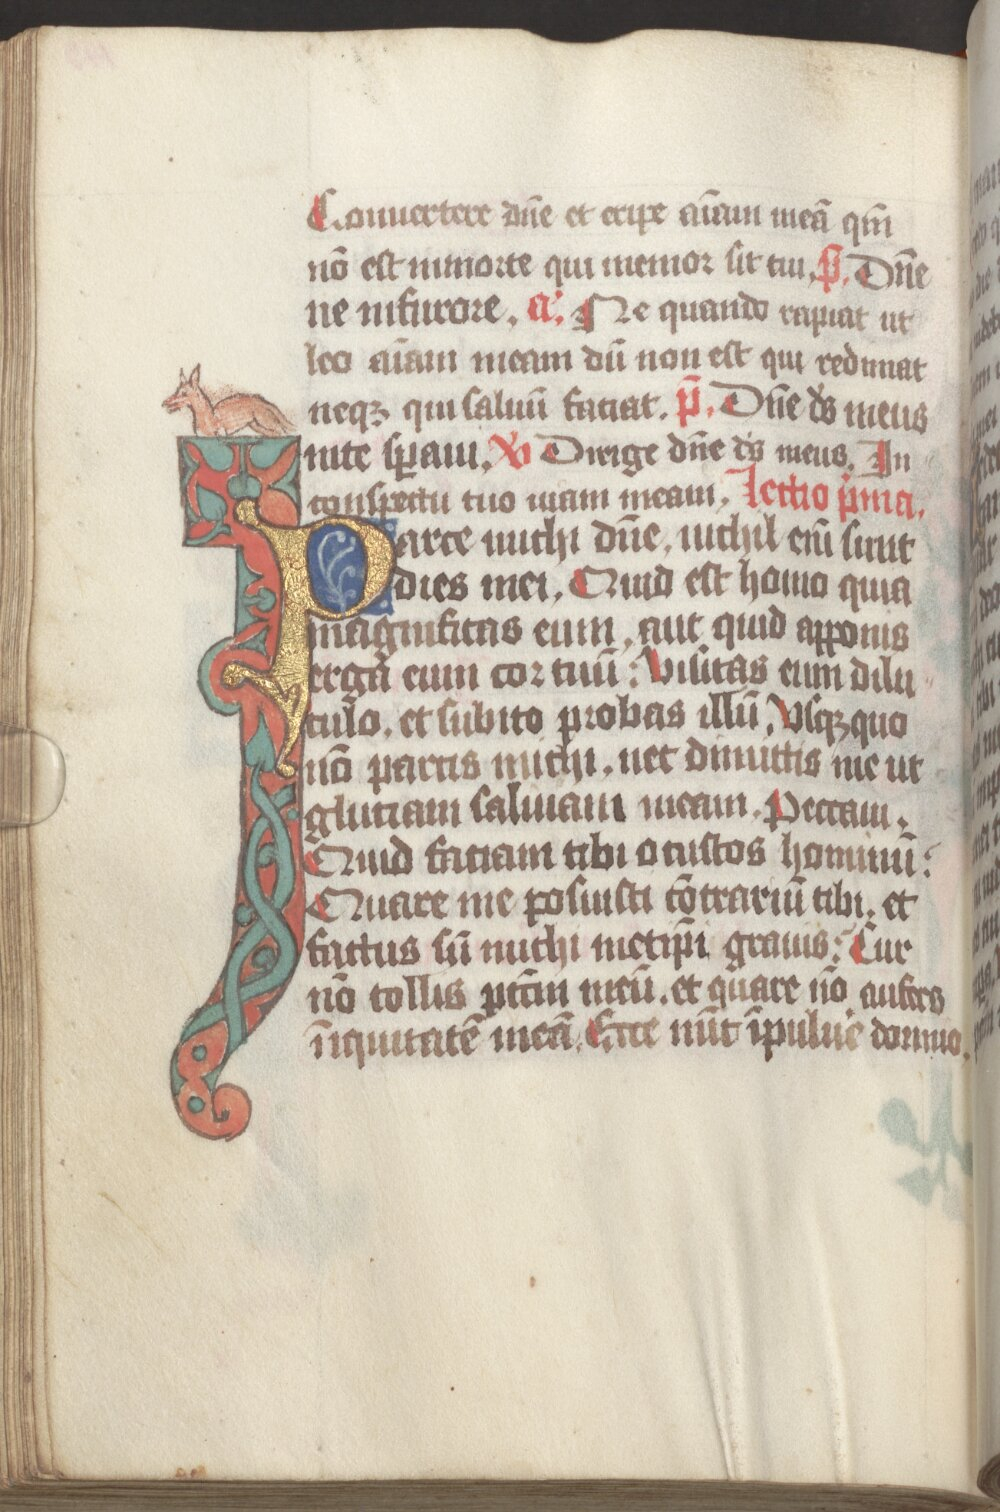 Conuertere dn̄e et eripe aīam meā qm̄
nō est in morte qui memor sit tui. p̄. Dn̄e
ne in furore. a. Ne quando rapiat ut
leo aīam meam dū non est qui redimat
neqꝫ qui saluū faciat. p̄. Dn̄e ds̄ meus
in te sꝑaui. V Dirige dn̄e ds̄ meus. In
conspectu tuo uiam meam. lectio p̄ma.
Parce michi dn̄e. nichil eni sunt
dies mei. Quid est homo quia
magnificas eum, aut quid apponis
erga eum cor tuū: Visitas eum dilu
culo. et subito probas illū, Vsqꝫquo
nō parcis michi. nec dimittis me ut
glutiam saliuam meam. Peccaui.
Quid faciam tibi o custos hominū:
Quare me posuisti cōtrariū tibi. et
factus sū michi metip̄i grauis: Cur
nō tollis pctm̄ meū. et quare nō aufers
īniquitatē meā. Ecce nūc ī puluē dormio.